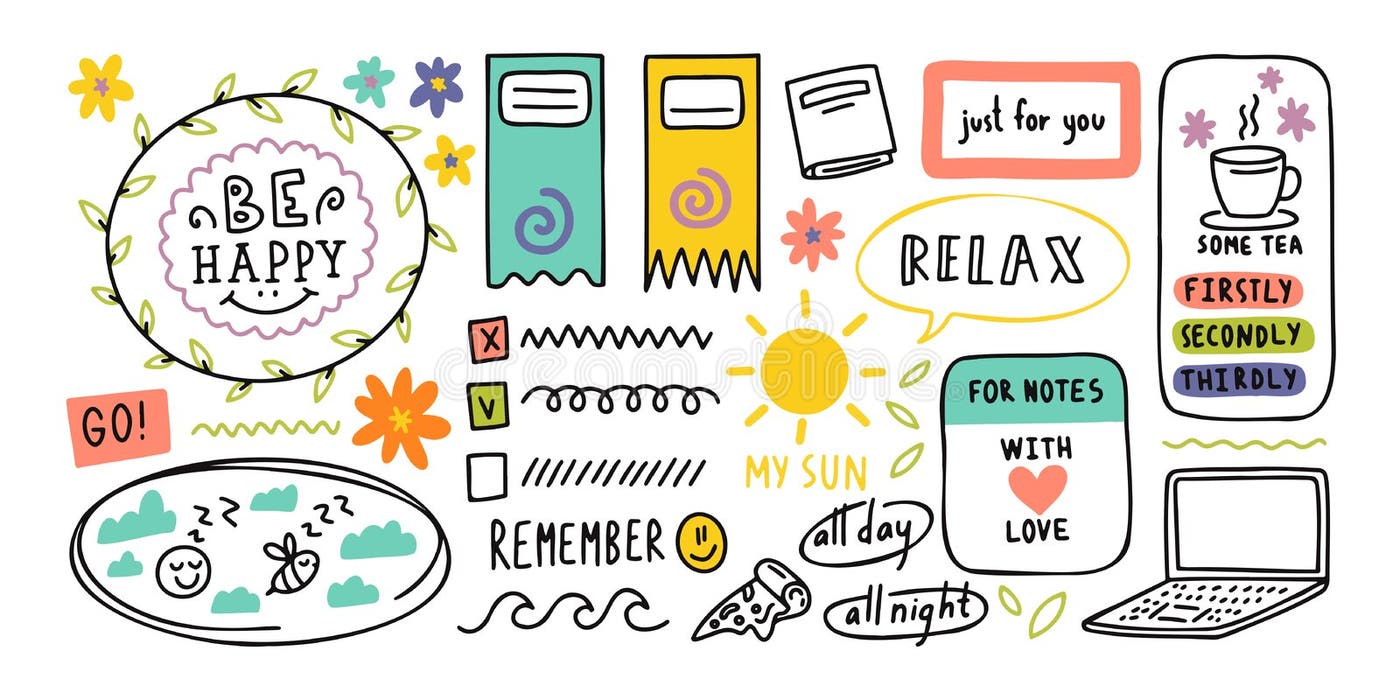 BE
HAPPY
just for you
RELAX
SOME TEA
FIRSTLY
SECONDLY
THIRDLY
X
V
GO!
MY SUN
FOR NOTES
WITH
LOVE
zzz
zzzz
REMEMBER
all day
all night
dreamstime